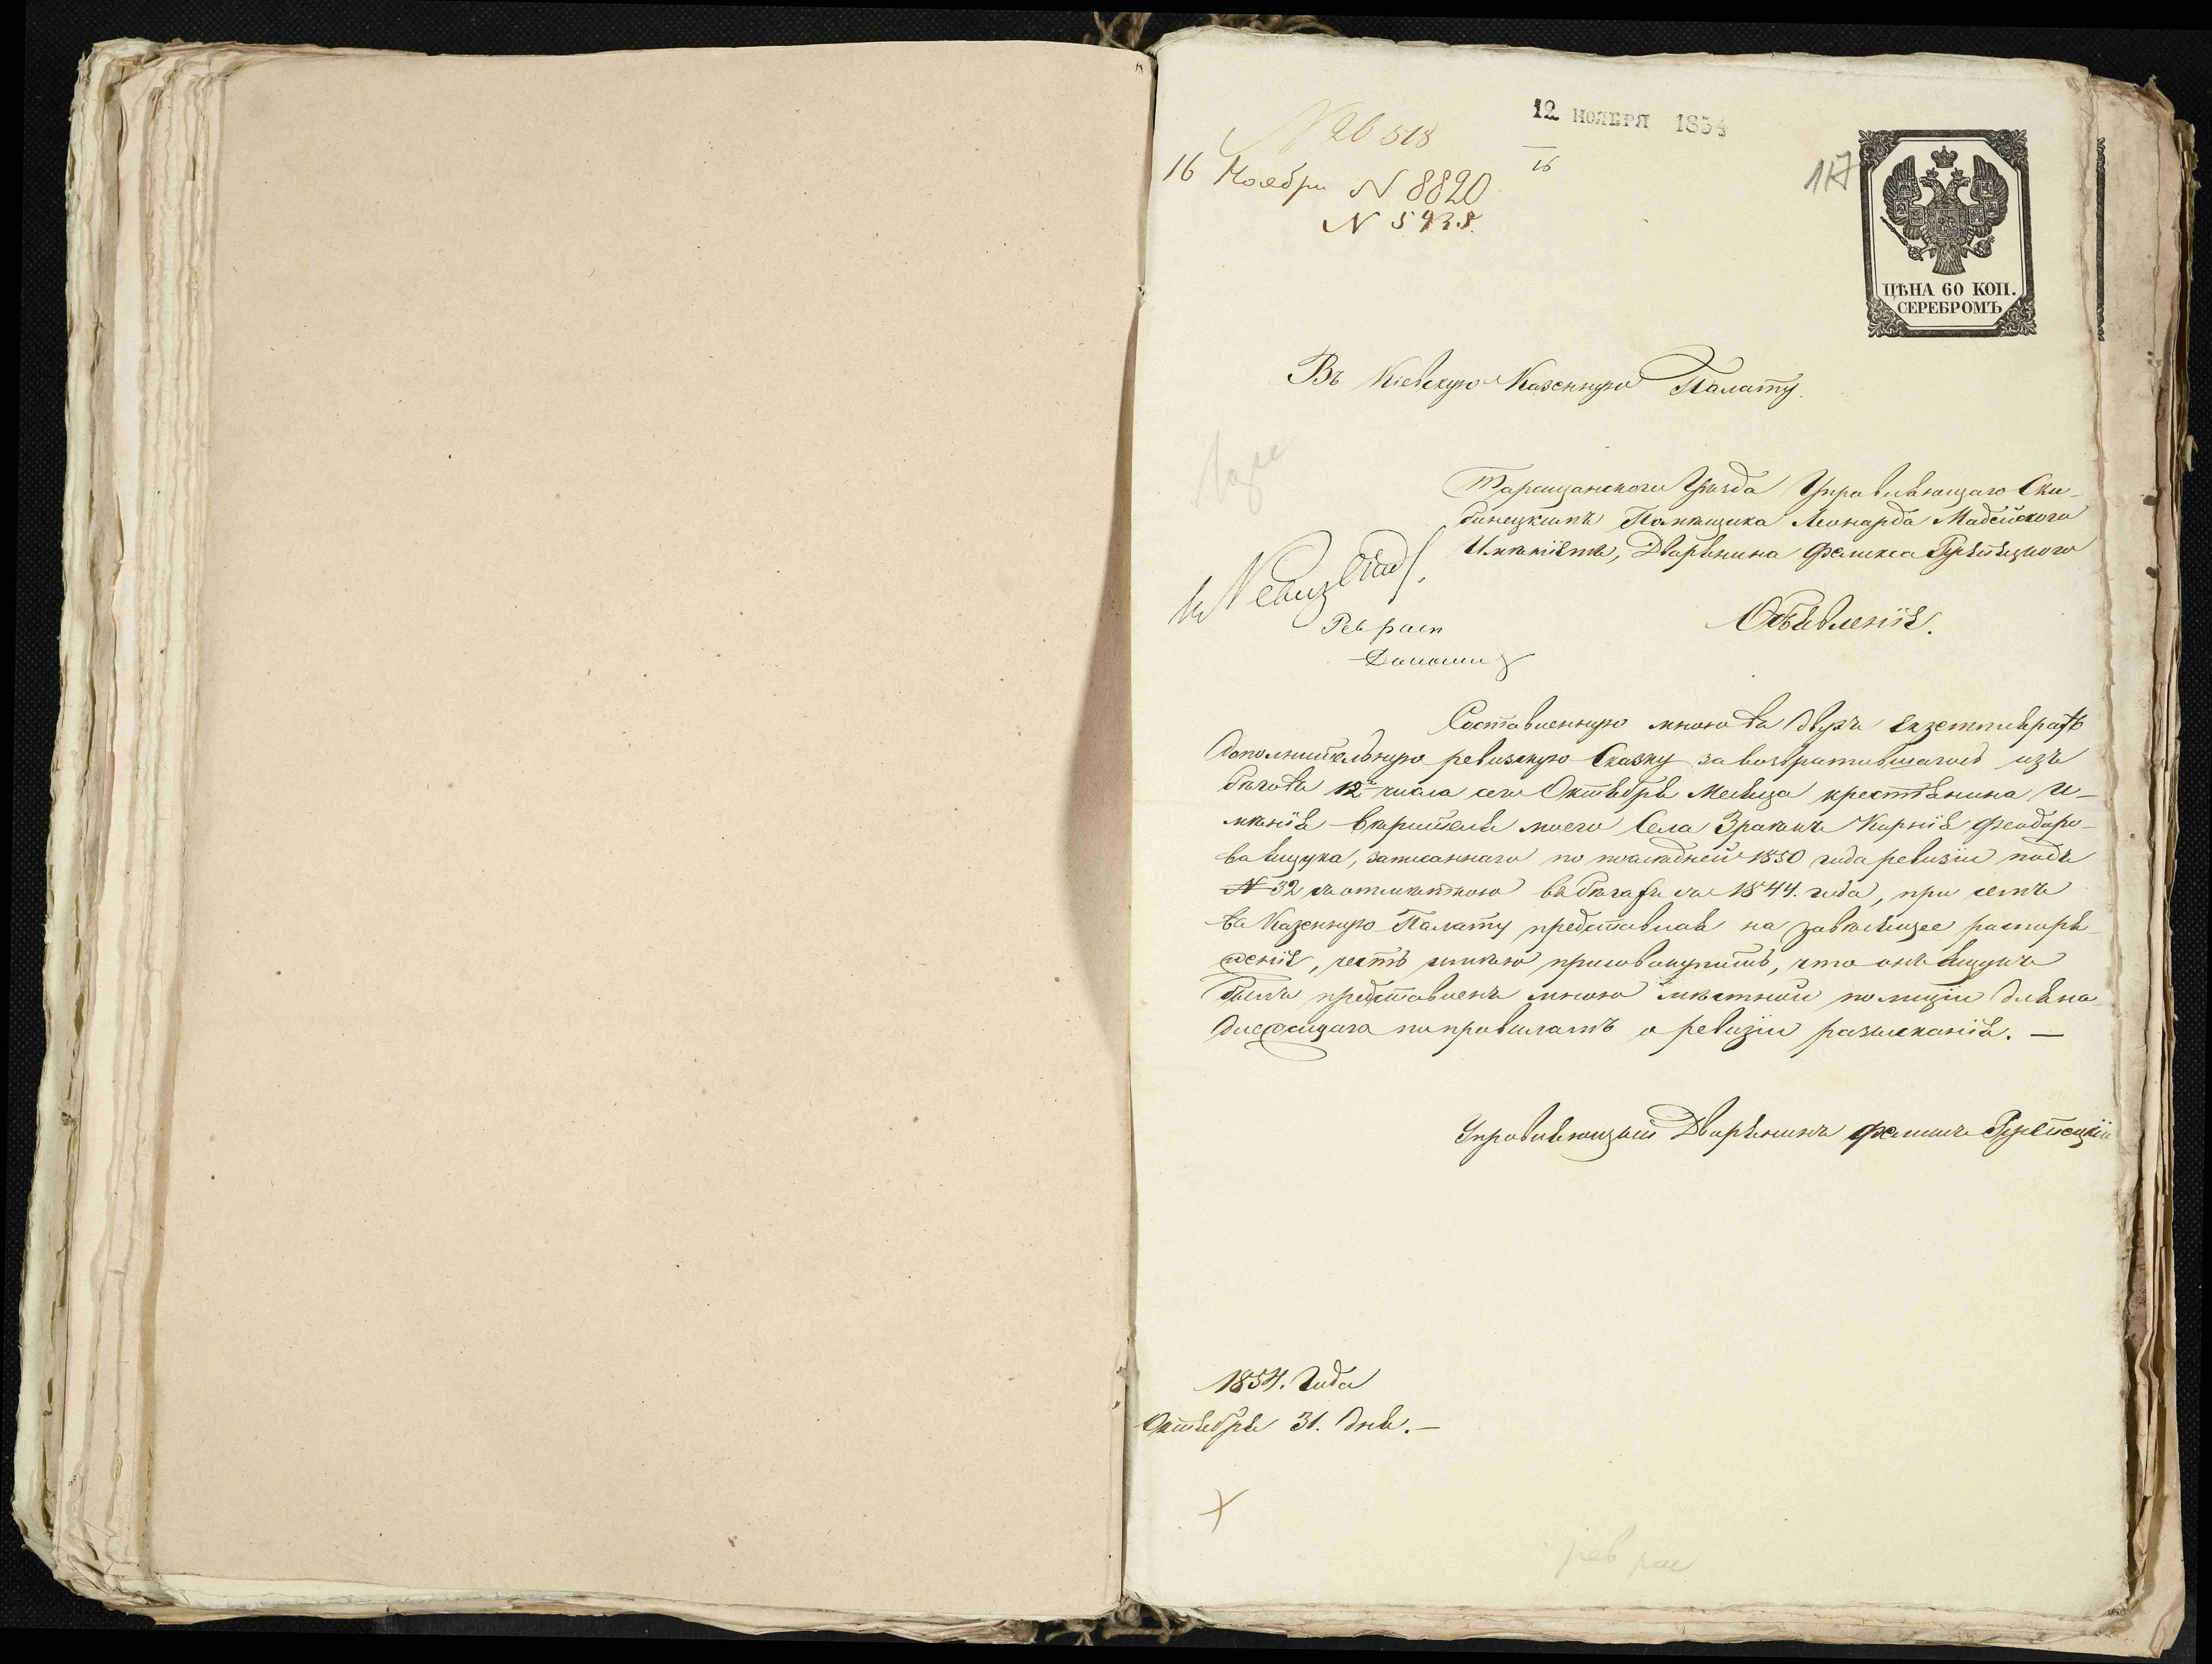 12 НОЯБРЯ 1854
№ 26518
16
16 Ноября № 8820
117
№ 5938.
ЦѢНА 60 КОП.
СЕРЕБРОМЪ
Въ Кіевскую Казенную Палату.
Таращанского Уѣзда Управляющаго Ски-
бинецкимъ Помѣщика Леонарда Мадейского
Имѣніемъ, Дворянина Феликса
Объявленіе.
Рев
Составленную мною въ двухъ екземплярахъ
дополнительную ревизскую Сказку за возвратившагося изъ
бѣговъ 12го числа сего Октября Месяца крестьянина и-
мѣнія вѣрителя моего Села Кирнія Феодоро-
ва Ищука, записаннаго по последней 1850 года ревизіи подъ
№ 32 съ отмѣткою въ бѣгахъ съ 1844. года, при семъ
въ Казенную Палату представляя на зависящее распоря-
женіе, честь имѣю присовокупить, что онъ Ищукъ
былъ представленъ мною мѣстной полиціи для на-
длежащаго по правиламъ о ревизіи разысканія. —
Управляющый Дворянинъ Феликсъ
1854. Года
Октября 31. дня. —
рев